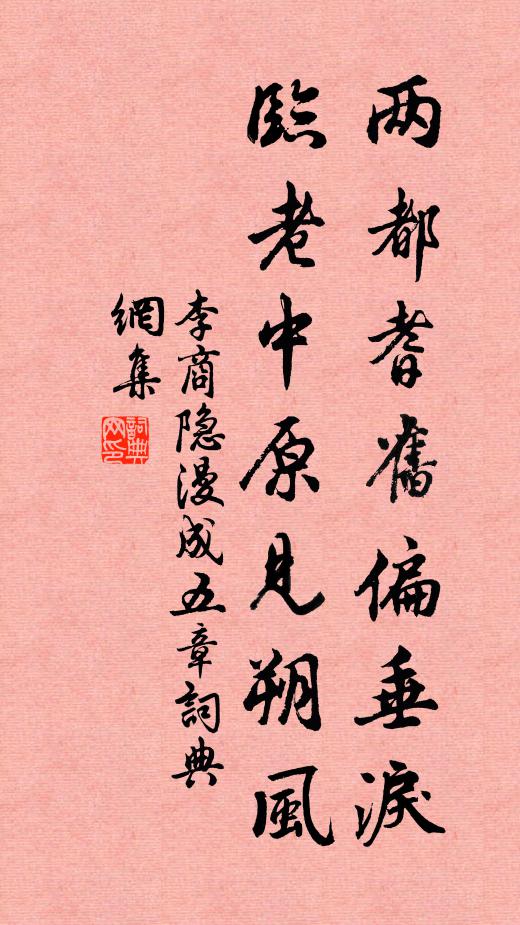 两都耆舊偏垂淚
臨老中原見朔風
李商隐漫成五章詞典
網集
詞典网印